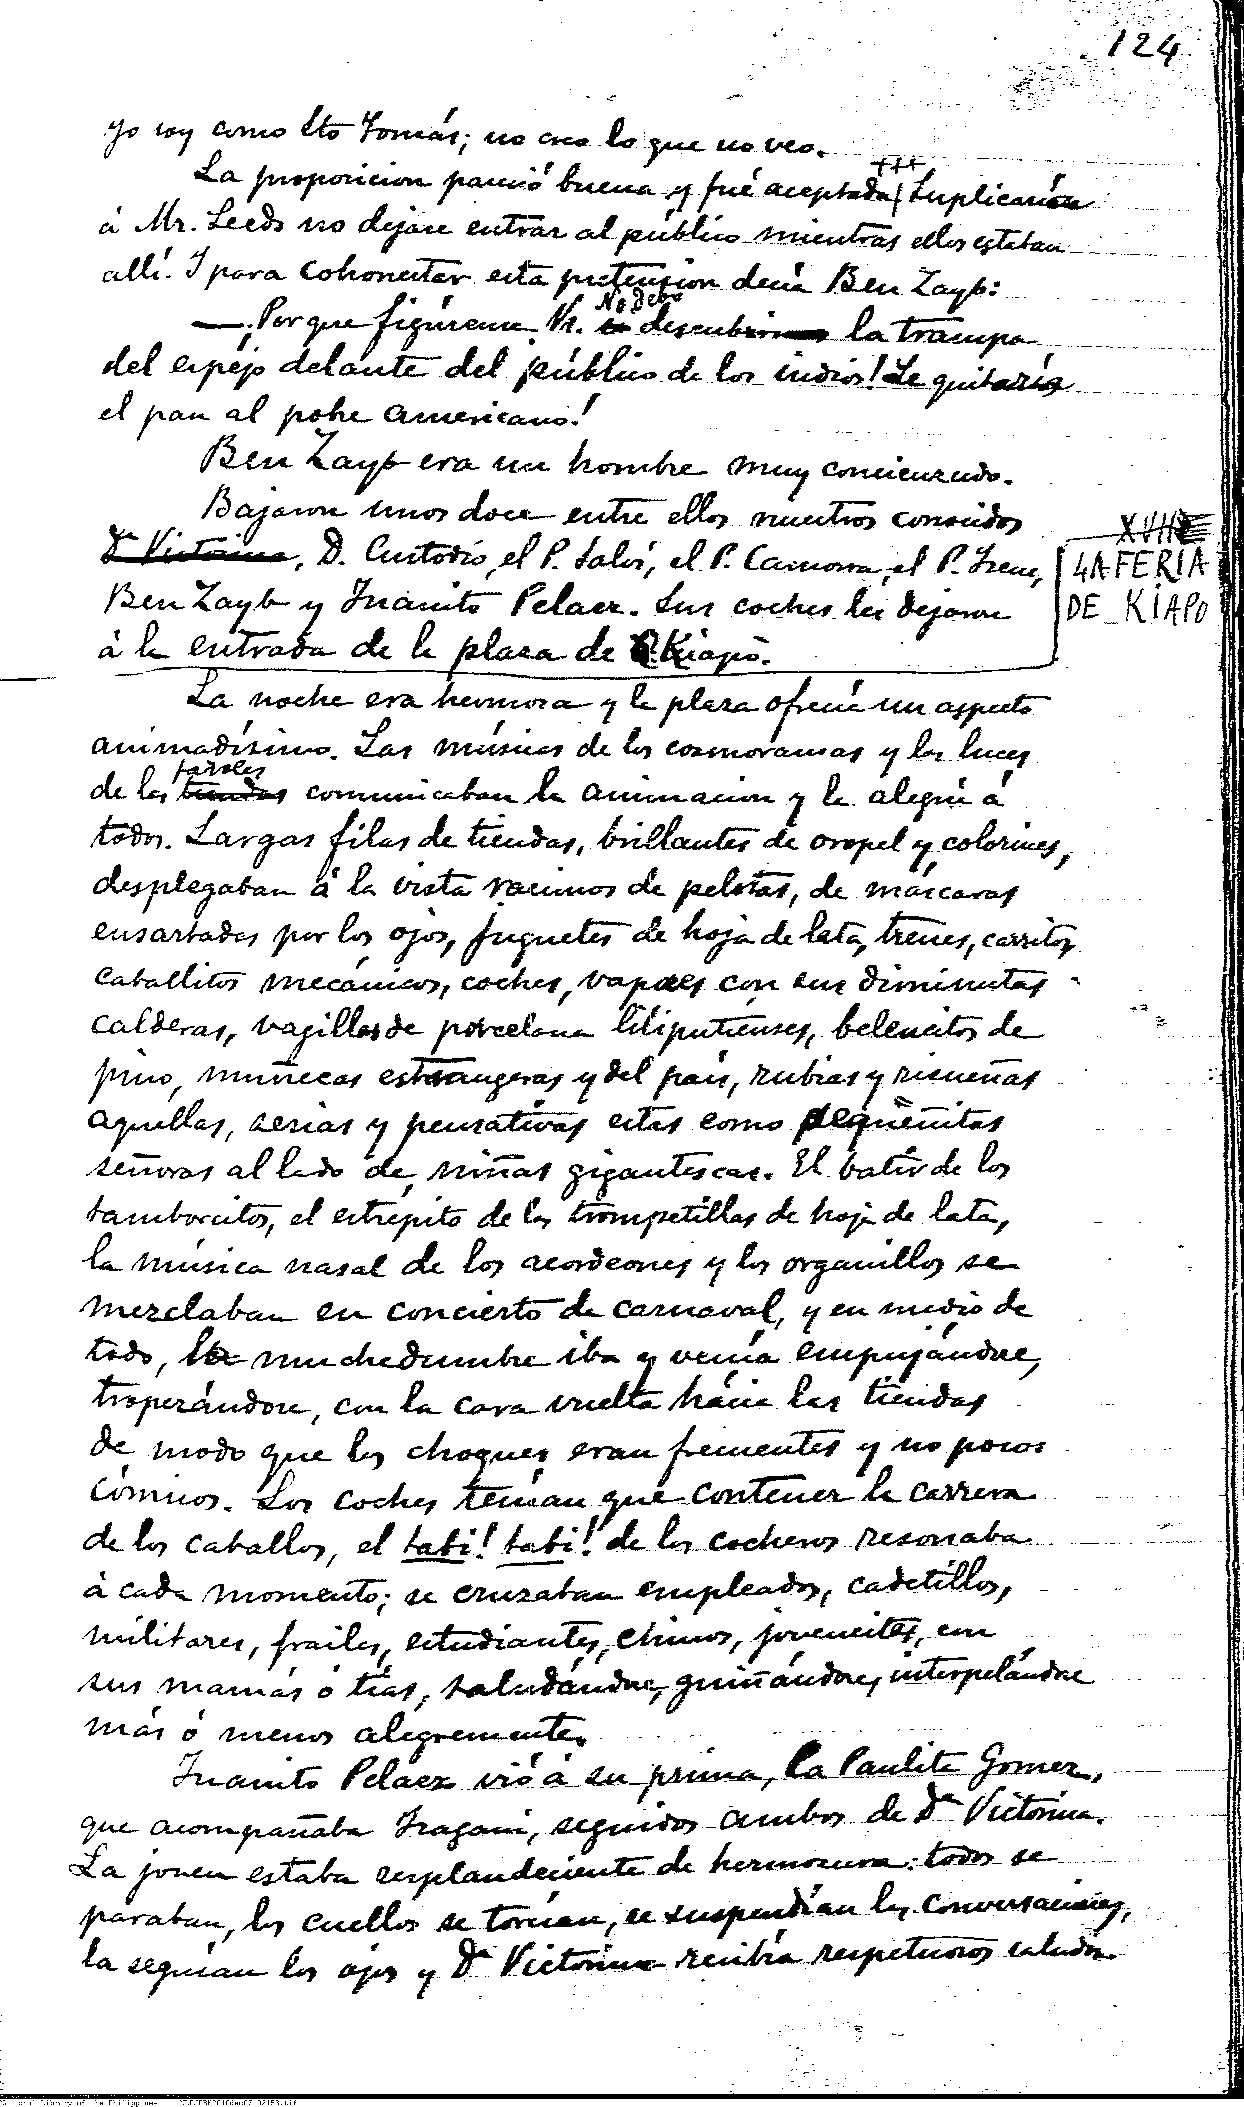 124
yo soy como Sto Tomás; no creo lo que no veo.
La proposicion pareció buena y fué aceptada +++ Suplicaron
á Mr. Leeds no dejase entrar al público mientras ellos estaban
allí. Y para cohonestar esta pretension decía Ben Zayb:
—¡Porque figúrense Vs. No debo descubrir la trampa
del espejo delante del público de los indios! Le quitaría
el pan al pobre americano!
Ben Zayb era un hombre muy concienzudo.
Bajaron unos doce entre ellos nuestros conocidos
Dª Victorina, D. Custodio, el P. Salví, el P. Camorra, el P. Irene,
Ben Zayb y Juanito Pelaez. Sus coches les dejaron
á la entrada de la plaza de Kiapò.
XVII
LA FERIA
DE KIAPO
La noche era hermosa y la plaza ofrecía un aspecto
animadísimo. Las músicas de los cosmoramas y las luces
de los faroles tiendas comunicaban la animacion y la alegría á
todos. Largas filas de tiendas, brillantes de oropel y colorines,
desplegaban á la vista racimos de pelotas, de máscaras
ensartadas por los ojos, juguetes de hoja de lata, trenes, carritos,
caballitos mecánicos, coches, vapores con sus diminutas
calderas, vagillas de porcelana liliputienses, belencitos de
pino, muñecas estrangeras y del país, rubias y risueñas
aquellas, serias y pensativas estas como pequeñitas
señoras al lado de niñas gigantescas. El batir de los
tamborcitos, el estrépito de las trompetillas de hoja de lata,
la música nasal de los acordeones y los organillos se
mezclaban en concierto de carnaval, y en medio de
todo, la muchedumbre iba y venía empujándose,
tropezándose, con la cara vuelta hácia las tiendas
de modo que los choques eran frecuentes y no pocos
cómicos. Los coches tenían que contener la carrera
de los caballos, el tabi! tabi! de los cocheros resonaba
á cada momento; se cruzaban empleados, cadetillos,
militares, frailes, estudiantes, chinos, jovencitas, con
sus mamás ó tías, saludándose, guiñándose, interpelándose
más ó menos alegremente.
Juanito Pelaez vió á su prima, la Paulita Gomez,
que acompañaba Isagani, seguidos ambos de Dª Victorina.
La joven estaba resplandeciente de hermosura: todos se
paraban, los cuellos se torcían, se suspendían las conversaciones,
la seguían los ojos y Dª Victorina recibía respetuosos saludos.